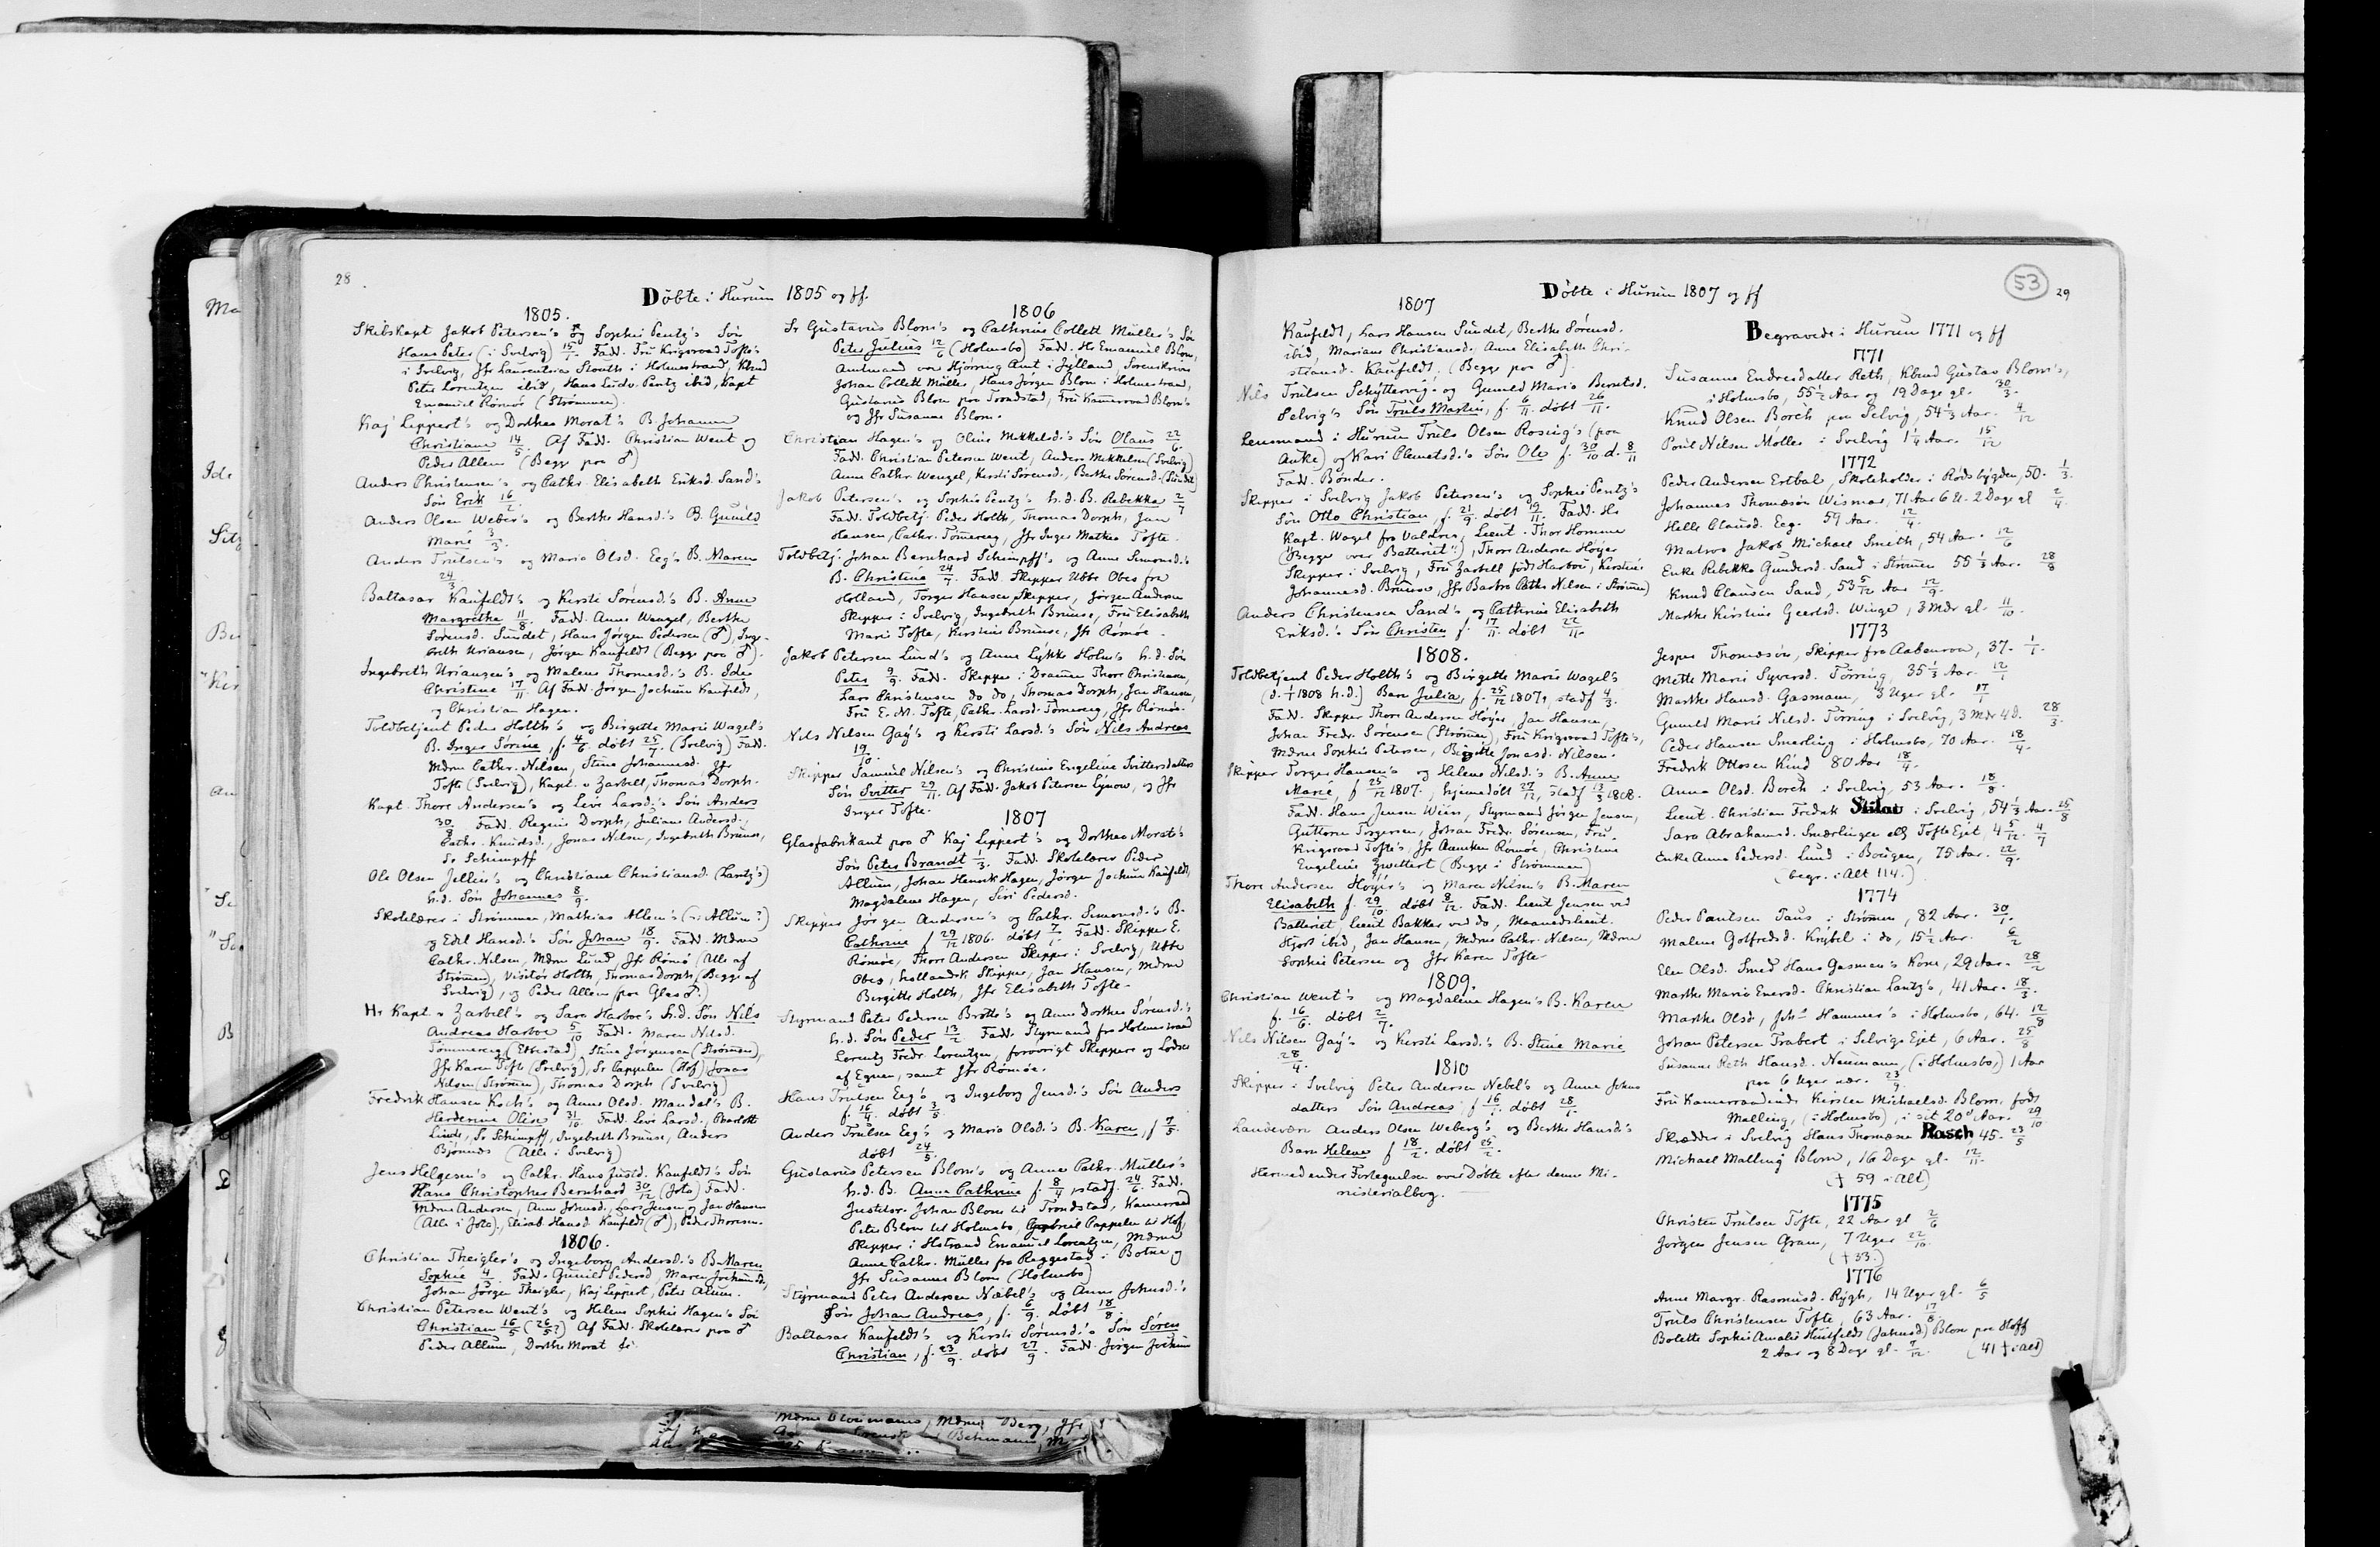 28
Döbte i Hurum 1805 og ff.
1805.
Skibskapt Jakob Petersen's og Sophie Pentz's Søn
Hans Peter (i Svelvig) 15/1. Fadd. Fru Krigsraad Tofte's
i Svelvig, Jfr Laurentzia Stouth i Holmestrand, Kbmd
Peter Lorentzen ibid, Hans Ludv. Pentz ibid, Kapt
Emanuel Römör (Strømmen).
Kaj Lippert's og Dorthea Morat's B. Johanne
Christiane 14/5. Af Fadd. Christian Went og
Peder Allum (Begge paa ♂)
Anders Christensen's og Cathr. Elisabeth Eriksd. Sand's
Søn Erik 16/2.
Anders Olsen Weber's og Berthe Hansd.'s B. Gunild
Marie 3/3.
Anders Trulsen's og Maria Olsd. Eeg's B. Maren
24/3.
Baltasar Kaufeldt's og Kersti Sørensd.'s B. Anne
Margrethe 11/8. Fadd. Anne Wengel, Berthe
Sørensd. Sundet, Hans Jørgen Pedersen (♂), Inge-
breth Uriansen, Jørgen Kaufeldt (Begge paa ♂).
Ingebreth Uriansen's og Malene Thomesd.'s B. Ide
Christine 17/11. Af Fadd. Jørgen Jochum Kaufeldt,
og Christian Hagen.
Toldbetjent Peder Holth's og Birgitte Marie Wagel's
B. Inger Sørine, f. 4/6. döbt 25/7. (Svelvig) Fadd.
Mdme Cathr. Nilsen, Stine Johannesd. Jfr
Tofte (Svelvig), Kapt. v Zarbell, Thomas Dorph.
Kapt. Thore Andersen's og Live Larsd.'s Søn Anders
30/8 Fadd. Regine Dorph, Juliane Andersd.,
Cathr. Knudsd., Jonas Nilsen, Ingebreth Bruuse,
Sr Schimpff
Ole Olsen Jellein's og Christiane Christiansd. (Lantz's)
h.d. Søn Johannes 8/9.
Skolelærer i Strømmen, Mathias Allum's (: Allum?)
og Edel Hansd.'s Søn Johan 18/9. Fadd. Mdme
Cathr. Nilsen, Mdme Lund, Jfr Römö (Alle af
Strømm), Visitör Holth, Thomas Dorph (Begge af
Svelvig), og Peder Allum (paa Glas♂.)
Hr Kapt. v Zarbell's og Sara Harboe's h.d. Søn Nils
Andreas Harboe 5/10 Fadd. Maren Nilsd.
Tømmeraas (Ebbestad), Stine Jørgensen (Strømm),
Jfr Karen Tofte (Svelvig), Sr Cappelen (Hof) Jonas
Nilsen (Strømm), Thomas Dorph (Svelvig)
Fredrik Hansen Koch's og Anne Olsd. Mandal's B.
Olive 31/10 Fadd. Live Larsd., Charlott
Linde, Sr Schimpff, Ingebreth Bruuse, Anders
Björnnes (Alle i Svelvig)
Jens Helgesen's og Cathr. Hans Justd. Kaufeldt's Søn
Hans Christopher Bernhard 30/12 (Jota) Fadd.
Mdme Andersen, Anne Johnsd., Lars Jensen og Jan Hansen
(Alle i Jota), Elisab. Hansd. Kaufeldt (♂), Peder Thoresen.
1806.
Christian Theigler's og Ingeborg Andersd.'s B. Maren
Sophie 4/4 Fadd. Gunild Pedersd, Maren Jochumsd,
Johan Jørgen Theigler, Kaj Leppert, Peter Allum.
Christian Petersen Went's og Helene Sophie Hagen's Søn
Christian 16/5 (26/5?) Af Fadd. Skolelærer paa ♂
Peder Allum, Dorthe Morat &c
1806
Sr Gustavus Blom's og Cathrine Collett Müller's Søn
Peter Julius 12/6 (Holmsbo) Fadd. Hr Emanuel Blom,
Amtmand over Hjørring Amt i Jylland, Sorenskriver
Johan Collett Müller, Hans Jørgen Blom i Holmestrand,
Gustavus Blom paa Trondstad, Fru Kammeraad Blom's
og Jfr Susanne Blom.
Christian Hagen's og Oline Mikkelsd.'s Søn Olaus 22/6.
Fadd. Christian Petersen Went, Anders Mikkelsen (Svelvig)
Anne Cathr. Wengel, Kersti Sørensd., Berthe Sørensd. (Sundet)
Jakob Petersen's og Sophie Pentz's h.d. B. Rebekka 2/7
Fadd. Toldbetj. Peder Holth, Thomas Dorph, Jan
Hansen, Cathr. Tømeraas, Jfr Inger Mathea Tofte.
Toldbetj. Johan Bernhard Schimpff's og Anne Simonsd.'s
B. Christine 24/7. Fadd. Skipper Ubbe Obes fra
Holland, Torger Hansen Skipper, Jørgen Andersen
Skipper i Svelvig, Ingebreth Bruuse, Fru Elisabeth
Marie Tofte, Kirstine Bruuse, Jfr Römöe.
Jakob Petersen Lund's og Anne Lykke Holm's h.d. Søn
Peter 9/9. Fadd. Skipper i Dramen Thore Christensen,
Lars Christensen do do, Thomas Dorph, Jan Hansen,
Fru E. M. Tofte, Cathr. Larsd. Tömeraas, Jfr Römöe.
Nils Nilsen Gay's og Kersti Larsd.'s Søn Nils Andreas
19/10.
Skipper Samuel Nilsen's og Christine Engeline Svittersdatters
Søn Svitter 29/11. Af Fadd. Jakob Petersen Lynow, og Jfr
Inger Tofte.
1807
Glasfabrikant paa ♂ Kaj Lippert's og Dorthea Morat's
Søn Peter Brandt 1/3. Fadd. Skolelærer Peder
Allum, Johan Henrik Hagen, Jörgen Jochum Kaufeldt,
Magdalene Hagen, Siri Pedersd.
Skipper Jørgen Andersen's og Cathr. Simonsd.'s B.
Cathrine f 29/12 1806. döbt 7/1. Fadd. Skipper E.
Römöe, Thore Andersen Skipper i Svelvig, Ubbe
Obes, hollandsk Skipper, Jan Hansen, Mdme
Birgitte Holth, Jfr Elisabeth Tofte.
Styrmand Peter Pedersen Brotte's og Anne Dorthea Sørensd.'s
h.d. Søn Peder 13/2 Fadd. Styrmand fra Holmestrand
Lorentz Fredr. Lorentzen, forøvrigt Skippere og Lodser
af Egnen, samt Jfr Römöe.
Hans Trulsen Eeg's og Ingeborg Jensd.'s Søn Anders
f. 16/4. döbt 3/5.
Anders Trulsen Eeg's og Maria Olsd.'s B. Karen, f 7/5.
döbt 24/5.
Gustavus Petersen Blom's og Anne Cathr. Müller's
h.d. B. Anne Cathrine f. 8/4, stadf. 24/6. Fadd.
Justitsr. Johan Blom til Trondstad, Kamerraad
Peter Blom til Holmsbo, Gabriel Cappelen til Hof,
Skipper i Hstrand Emanuel Lorentzen, Mdme
Anne Cathr. Müller fra Reggestad i Botne og
Jfr Susanne Blom (Holmsbo)
Styrmand Peter Andersen Næbel's og Anne Johnsd.'s
Søn Johan Andreas, f. 6/9. döbt 18/8.
Baltasar Kaufeldt's og Kersti Sørensd.'s Søn Søren
Christian, f. 23/9. döbt 27/9. Fadd. Jørgen Jochum
53
29
Döbte i Hurum 1807 og ff
1807
Kaufeldt, Lars Hansen Sundet, Berthe Sørensd.
ibid, Mariane Christiansd., Anne Elisabeth Chri-
stiansd. Kaufeldt. (Begge paa ♂).
Nils Trulsen Schyttervig's og Gunild Maria Berntsd.
Selvig's Søn Truls Martin, f. 6/11. döbt 26/11.
Lensmand i Hurum Truls Olsen Rosing's (paa
Auke) og Kari Clemetsd.'s Søn Ole f. 30/10 d. 8/11
Fadd. Bönder.
Skipper i Svelvig Jakob Petersen's og Sophie Pentz's
Søn Otto Christian f. 21/9 döbt 19/11. Fadd. Hr
Kapt. Wagel fra Valdres, Lieut. Thor Homme
(Begge over Batteriet!), Thore Andersen Höyer
Skipper i Svelvig, Fru Zarbell född Harboe, Kirstine
Johannesd. Bruuse, Jfr Barbra Cathr. Nilsen i Strømm)
Anders Christensen Sand's og Cathrine Elisabeth
Eriksd.'s Søn Christen f. 17/11. döbt 22/11.
1808.
Toldbetjent Peder Holth's og Birgitte Marie Wagel's
(d. 1/1 1808 h.d.) Barn Julia, f. 25/12 1807, stadf 4/3.
Fadd. Skipper Thore Andersen Höyer, Jan Hansen,
Johan Fredr. Sørensen (Strømm), Fru Krigsraad Tofte's,
Mdme Sophie Petersen, Birgitte Jonasd. Nilsen.
Skipper Torger Hansen's og Helene Nilsd.'s B. Anne
Marie, f 25/12 1807., hjemedöbt 27/12, stadf 13/3 1808.
Fadd. Hans Jensen Wein, Styrmand Jørgen Jensen,
Guttorm Torgersen, Johan Fredr. Sørensen, Fru
Krigsraad Tofte's, Jfr Anniken Römöe, Christine
Engeline Zwittert (Begge i Strømmen)
Thore Andersen Höyer's og Maren Nilsen's B. Maren
Elisabeth f. 29/10. döbt 8/12. Fadd. Lieut Jensen ved
Batteriet, Lieut Bakker ved do, Maanedslieut.
Hjort ibid, Jan Hansen, Mdme Cathr. Nilsen, Mdme
Sophie Petersen og Jfr Karen Tofte.
1809.
Christian Went's og Magdalene Hagen's B. Karen
f. 16/6. döbt 2/7.
Nils Nilsen Gay's og Kersti Larsd.'s B. Stine Marie
28/4.
1810
Skipper i Svelvig Peter Andersen Nebel's og Anne Johns
datters Søn Andreas f 16/1. döbt 28/1.
Landeværn Anders Olsen Weberg's og Berthe Hansd.'s
Barn Helene f 18/2. döbt 25/2.
Hermed ender Fortegnelsen over Döbte efter denne Mi-
nisterialbog.
Begravede i Hurum 1771 og ff
1771
Susanne Endresdatter Reth, Kbmd Gustav Blom's,
i Holmsbo, 55 1/2 Aar og 19 Dage gl. 30/3.
Knud Olsen Borch paa Selvig, 54 1/3 Aar. 4/12
Poul Nilsen Møller i Svelvig 1 1/4 Aar. 15/12
1772
Peder Andersen Ertbøl, Skoleholder i Rødsbygden, 50. 1/3.
Johannes Thomæsøn Wismar, 71 Aar 6 U. 2 Dage gl 2/4.
Helle Clausd. Eeg. 59 Aar. 12/4.
Matros Jakob Michael Smith, 54 Aar. 12/6
Enke Rebekka Gundersd. Sand i Strømen 55 1/3 Aar. 28/8
Knud Clausen Sand, 53 5/12 Aar 12/9.
Marthe Kirstine Geertsd. Winge, 3 Mdr gl. 11/10.
1773
Jesper Thomæsön, Skipper fra Aabenraa, 37. 1/1.
Mette Marie Syversd. Tørring, 35 1/3 Aar. 12/1
Marthe Hansd. Gasmann, 3 Uger gl. 17/1
Gunild Marie Nilsd. Törring i Svelvig, 3 Mdr 4 d. 28/3.
Peder Hansen Smerling i Holmsbo, 70 Aar. 18/4.
Fredrik Ottosen Kind 80 Aar 18/4.
Anna Olsd. Borch i Svelvig, 53 Aar. 18/8.
Lieut. Christian Fredrik i Svelvig, 54 1/3 Aar. 15/8
Sara Abrahamsd. Smærlingen Tofte Ejet, 4 5/12. 4/7
Enke Anne Pedersd. Lund i Bougen, 75 Aar. 22/9.
(begr. i Alt 114.)
1774
Peder Paulsen Taus i Strømen, 82 Aar. 30/1.
Malene Golfredsd. Knybel i do, 15 1/2 Aar. 6/2
Elen Olsd. Smed Hans Gasman's Kone, 29 Aar. 28/2
Marthe Maria Enersd. Christian Lantz's, 41 Aar. 18/3.
Marthe Olsd, Johs Hammer's i Holmsbo, 64. 12/8
Johan Petersen Trabert i Selvigs Ejet, 6 Aar. 25/8
Susanne Reth Hansd. Neumann, (i Holmsbo,) 1 Aar
paa 6 Uger nær. 23/9.
Fru Kammerraadinde Kirsten Michaelsd. Blom, född
Malling, (i Holmsbo), i sit 20d Aar. 29/10
Skrædder i Svelvig Hans Thomæsen Rasch 45. 23/5
Michael Malling Blom, 16 Dage gl. 12/11.
(† 59 i Alt)
1775
Christen Trulsen Tofte, 22 Aar gl 2/6
Jørgen Jensen Gram, 7 Uger 22/10.
(† 33.)
1776
Anne Margr. Rasmusd. Rygh, 14 Uger gl. 6/5
Truls Christensen Tofte, 63 Aar. 17/8
Bolette Sophie Amalie Huitfeldt (Johnsd) Blom paa Hoff
2 Aar og 8 Dage gl. 7/12. (41 † i alt)